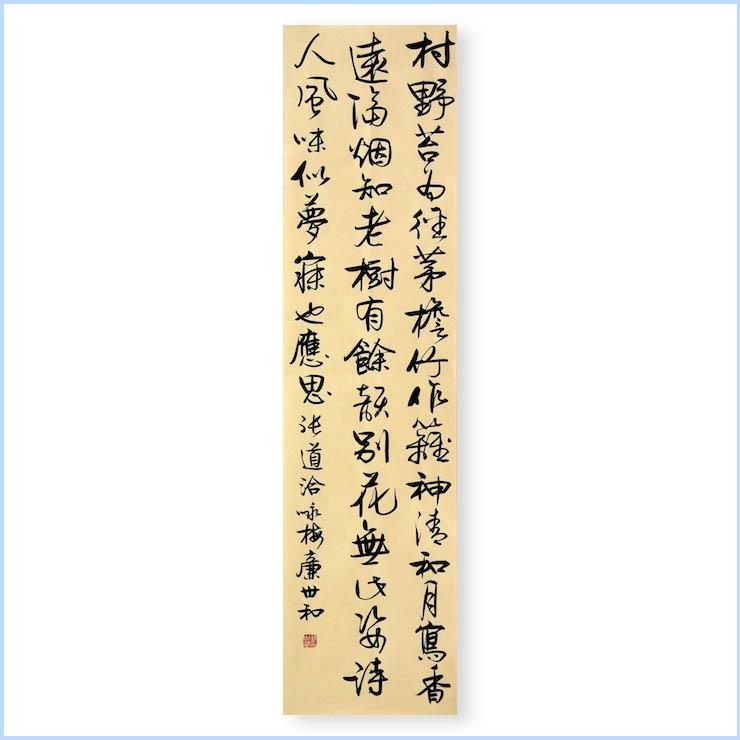 村野苔为徑茅檐竹作籬神清和月寫香
遠隔烟知老樹有餘韻别花無此姿詩
人風味似夢寐也應思 张道洽咏梅 廉世和